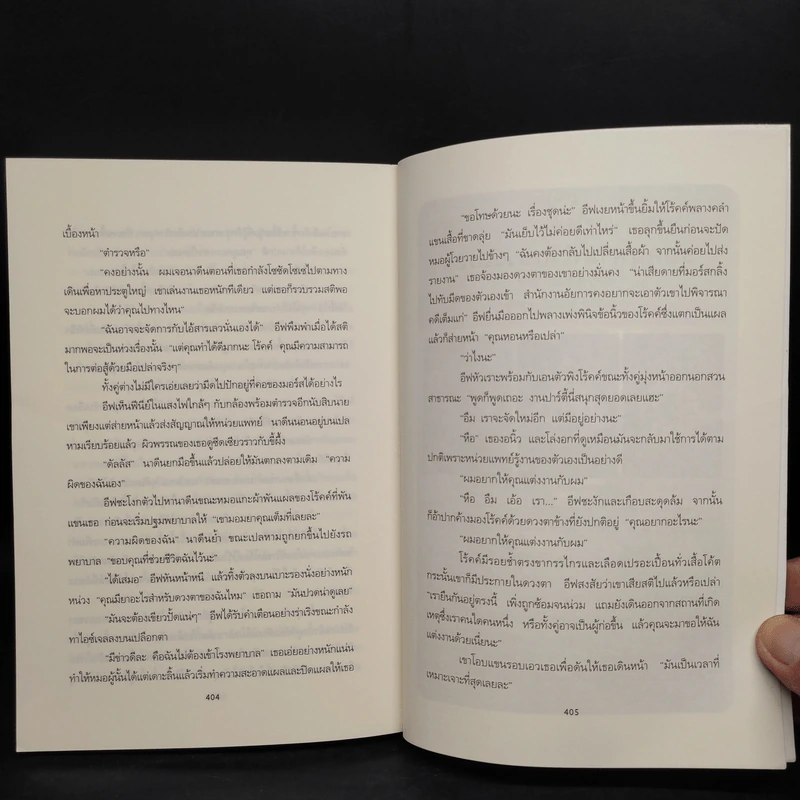 เบื้องหน้า
"ตำรวจหรือ"
"คงอย่างนั้น ผมเจอนาดีนตอนที่เธอกำลังโซซัดโซเซไปตามทาง
เดินเพื่อหาประตูใหญ่ เขาเล่นงานเธอหนักทีเดียว แต่เธอก็รวบรวมสติพอ
จะบอกผมได้ว่าคุณไปทางไหน"
"ฉันอาจจะจัดการกับไอ้สารเลวนั่นเองได้" อีฟพึมพำเมื่อได้สติ
มากพอจะเป็นห่วงเรื่องนั้น "แต่คุณทำได้ดีมากนะ โร้คค์ คุณมีความสามารถ
ในการต่อสู้ด้วยมือเปล่าจริงๆ"
ทั้งคู่ต่างไม่มีใครเอ่ยเลยว่ามีดไปปักอยู่ที่คอของมอร์สได้อย่างไร
อีฟเห็นฟีนีย์ในแสงไฟใกล้ๆ กับกล้องพร้อมตำรวจอีกนับสิบนาย
เขาเพียงแต่ส่ายหน้าแล้วส่งสัญญาณให้หน่วยแพทย์ นาดีนนอนอยู่บนเปล
หามเรียบร้อยแล้ว ผิวพรรณของเธอดูซีดเซียวราวกับขี้ผึ้ง
"ดัลลัส" นาดีนยกมือขึ้นแล้วปล่อยให้มันตกลงตามเดิม "ความ
ผิดของฉันเอง"
อีฟชะโงกตัวไปหานาดีนขณะหมอแกะผ้าพันแผลของโร้คค์ที่พัน
แขนเธอ ก่อนจะเริ่มปฐมพยาบาลให้ "เขามอมยาคุณเต็มที่เลยละ"
"ความผิดของฉัน" นาดีนย้ำ ขณะเปลหามถูกยกขึ้นไปยังรถ
พยาบาล "ขอบคุณที่ช่วยชีวิตฉันไว้นะ"
"ได้เสมอ" อีฟหันหน้าหนี แล้วทิ้งตัวลงบนเบาะรองนั่งอย่างหนัก
หน่วง "คุณมียาอะไรสำหรับดวงตาของฉันไหม" เธอถาม "มันปวดน่าดูเลย"
"มันจะต้องเขียวปั้ดแน่ๆ" อีฟได้รับคำเตือนอย่างร่าเริงขณะกำลัง
ทาไอซ์เจลลงบนเปลือกตา
"มีข่าวดีละ คือฉันไม่ต้องเข้าโรงพยาบาล" เธอเอ่ยอย่างหนักแน่น
ทำให้หมอผู้นั้นได้แต่เดาะลิ้นแล้วเริ่มทำความสะอาดแผลและปิดแผลให้เธอ
404
"ขอโทษด้วยนะ เรื่องชุดน่ะ" อีฟเงยหน้าขึ้นยิ้มให้โร้คค์พลางคลำ
แขนเสื้อที่ขาดลุ่ย "มันเย็บไว้ไม่ค่อยดีเท่าไหร่" เธอลุกขึ้นยืนก่อนจะปัด
หมอผู้โวยวายไปข้างๆ "ฉันคงต้องกลับไปเปลี่ยนเสื้อผ้า จากนั้นค่อยไปส่ง
รายงาน" เธอจ้องมองดวงตาของเขาอย่างมั่นคง "น่าเสียดายที่มอร์สกลิ้ง
ไปทับมีดของตัวเองเข้า สำนักงานอัยการคงอยากจะเอาตัวเขาไปพิจารณา
คดีเต็มแก่" อีฟยื่นมือออกไปพลางเพ่งพินิจข้อนิ้วของโร้คค์ซึ่งแตกเป็นแผล
แล้วก็ส่ายหน้า "คุณหอนหรือเปล่า"
"ว่าไงนะ"
อีฟหัวเราะพร้อมกับเอนตัวพิงโร้คค์ขณะทั้งคู่มุ่งหน้าออกนอกสวน
สาธารณะ "พูดก็พูดเถอะ งานปาร์ตี้นี่สนุกสุดยอดเลยแฮะ"
"อืม เราจะจัดใหม่อีก แต่มีอยู่อย่างนะ"
"หือ" เธองอนิ้ว และโล่งอกที่ดูเหมือนมันจะกลับมาใช้การได้ตาม
ปกติเพราะหน่วยแพทย์รู้งานของตัวเองเป็นอย่างดี
"ผมอยากให้คุณแต่งงานกับผม"
"หือ อืม เอ้อ เรา..." อีฟชะงักและเกือบสะดุดล้ม จากนั้น
ก็อ้าปากค้างมองโร้คค์ด้วยดวงตาข้างที่ยังปกติอยู่ "คุณอยากอะไรนะ"
"ผมอยากให้คุณแต่งงานกับผม"
โร้คค์มีรอยช้ำตรงขากรรไกรและเลือดเปรอะเปื้อนทั่วเสื้อโค้ต
กระนั้นเขาก็มีประกายในดวงตา อีฟสงสัยว่าเขาเสียสติไปแล้วหรือเปล่า
"เรายืนกันอยู่ตรงนี้ เพิ่งถูกซ้อมจนน่วม แถมยังเดินออกจากสถานที่เกิด
เหตุซึ่งเราคนใดคนหนึ่ง หรือทั้งคู่อาจเป็นผู้ก่อขึ้น แล้วคุณจะมาขอให้ฉัน
แต่งงานด้วยเนี่ยนะ"
เขาโอบแขนรอบเอวเธอเพื่อดันให้เธอเดินหน้า "มันเป็นเวลาที่
เหมาะเจาะที่สุดเลยละ"
405